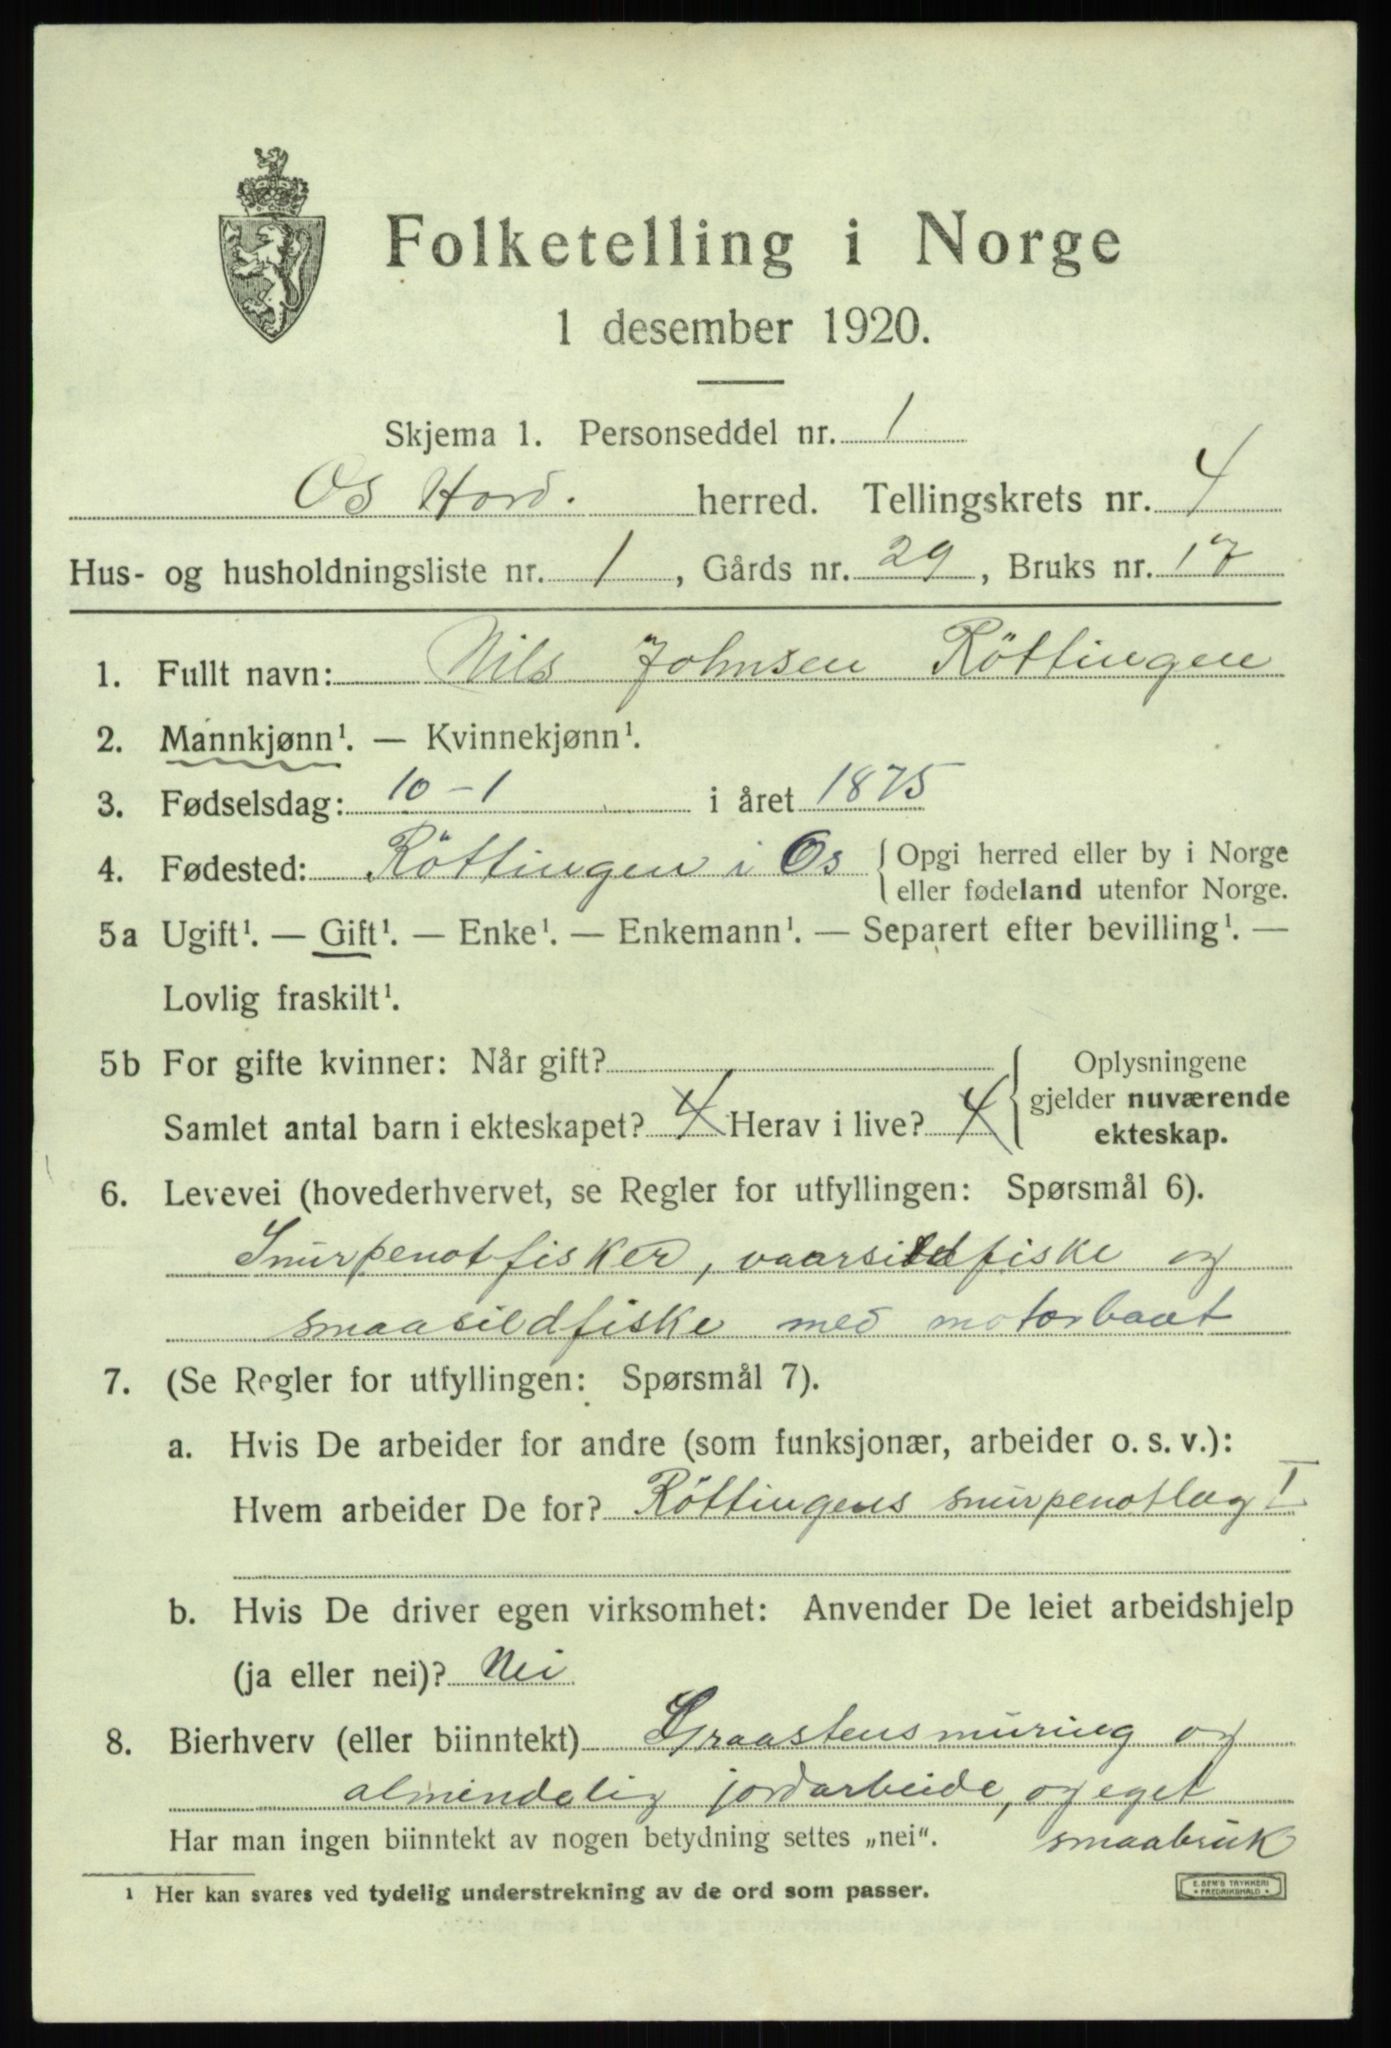 Folketelling i Norge
1 desember 1920.
Skjema 1. Personseddel nr. 1
Os Hord. herred. Tellingskrets nr. 4
Hus- og husholdningsliste nr. 1, Gårds nr. 29, Bruks nr. 17
1. Fullt navn: Nils Johnsen Röttingen
2. Mannkjønn¹. — Kvinnekjønn¹.
3. Fødselsdag: 10-1 i året 1875
4. Fødested: Röttingen i Os { Opgi herred eller by i Norge
eller fødeland utenfor Norge.
5a Ugift¹. — Gift¹. — Enke¹. — Enkemann¹. — Separert efter bevilling¹. —
Lovlig fraskilt¹.
5b For gifte kvinner: Når gift?
Samlet antal barn i ekteskapet? 4 Herav i live? 4
Oplysningene
gjelder nuværende
ekteskap.
6. Levevei (hovederhvervet, se Regler for utfyllingen: Spørsmål 6).
Snurpenotfisker, vaarsildfiske og
smaasildfiske med motorbaat
7. (Se Regler for utfyllingen: Spørsmål 7).
a. Hvis De arbeider for andre (som funksjonær, arbeider o. s. v.):
Hvem arbeider De for? Röttingens snurpenotlag I
b. Hvis De driver egen virksomhet: Anvender De leiet arbeidshjelp
(ja eller nei)? Nei
8. Bierhverv (eller biinntekt) Graastensmuring og
almindelig jordarbeide, og eget
Har man ingen biinntekt av nogen betydning settes „nei". smaabruk
¹ Her kan svares ved tydelig understrekning av de ord som passer.
E. SEM'S TRYKKERI
FREDRIKSHALD